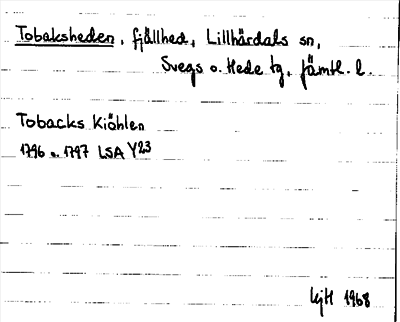 Tobaksheden, fjällhed, Lillhärdals sn,
Svegs o. Hede tg, Jämtl. l.
Tobacks Kiöhlen
1796 o. 1797 LSA Y23
1968